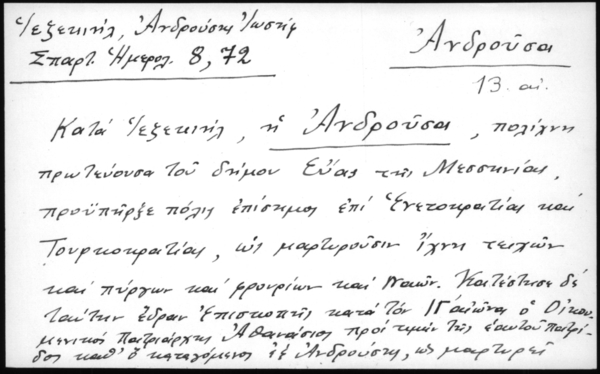 Ἰεζεκιήλ, Ἀνδρούσης Ἰωσήφ
Σπαρτ. Ἡμερολ. 8, 72
Ἀνδροῦσα
13. αἰ.
Κατά Ἰεζεκιήλ, ἡ Ἀνδροῦσα, πολίχνη
πρωτεύουσα τοῦ δήμου Εὔας τῆς Μεσσηνίας,
προϋπῆρξε πόλις ἐπίσημος ἐπί Ἑνετοκρατίας καί
Τουρκοκρατίας, ὡς μαρτυροῦσιν ἴχνη τειχῶν
καί πύργων καί φρουρίων καί Ναῶν. Κατέστησε δέ
ταύτην ἕδραν Ἐπισκοπῆς κατά τόν ΙΓ αἰῶνα ὁ Οἰκου-
μενικός Πατριάρχης Ἀθανάσιος πρός τιμήν τῆς ἑαυτοῦ πατρί-
δος καθ' ὅ καταγόμενος ἐξ Ἀνδρούσης, ὡς μαρτυρεῖ